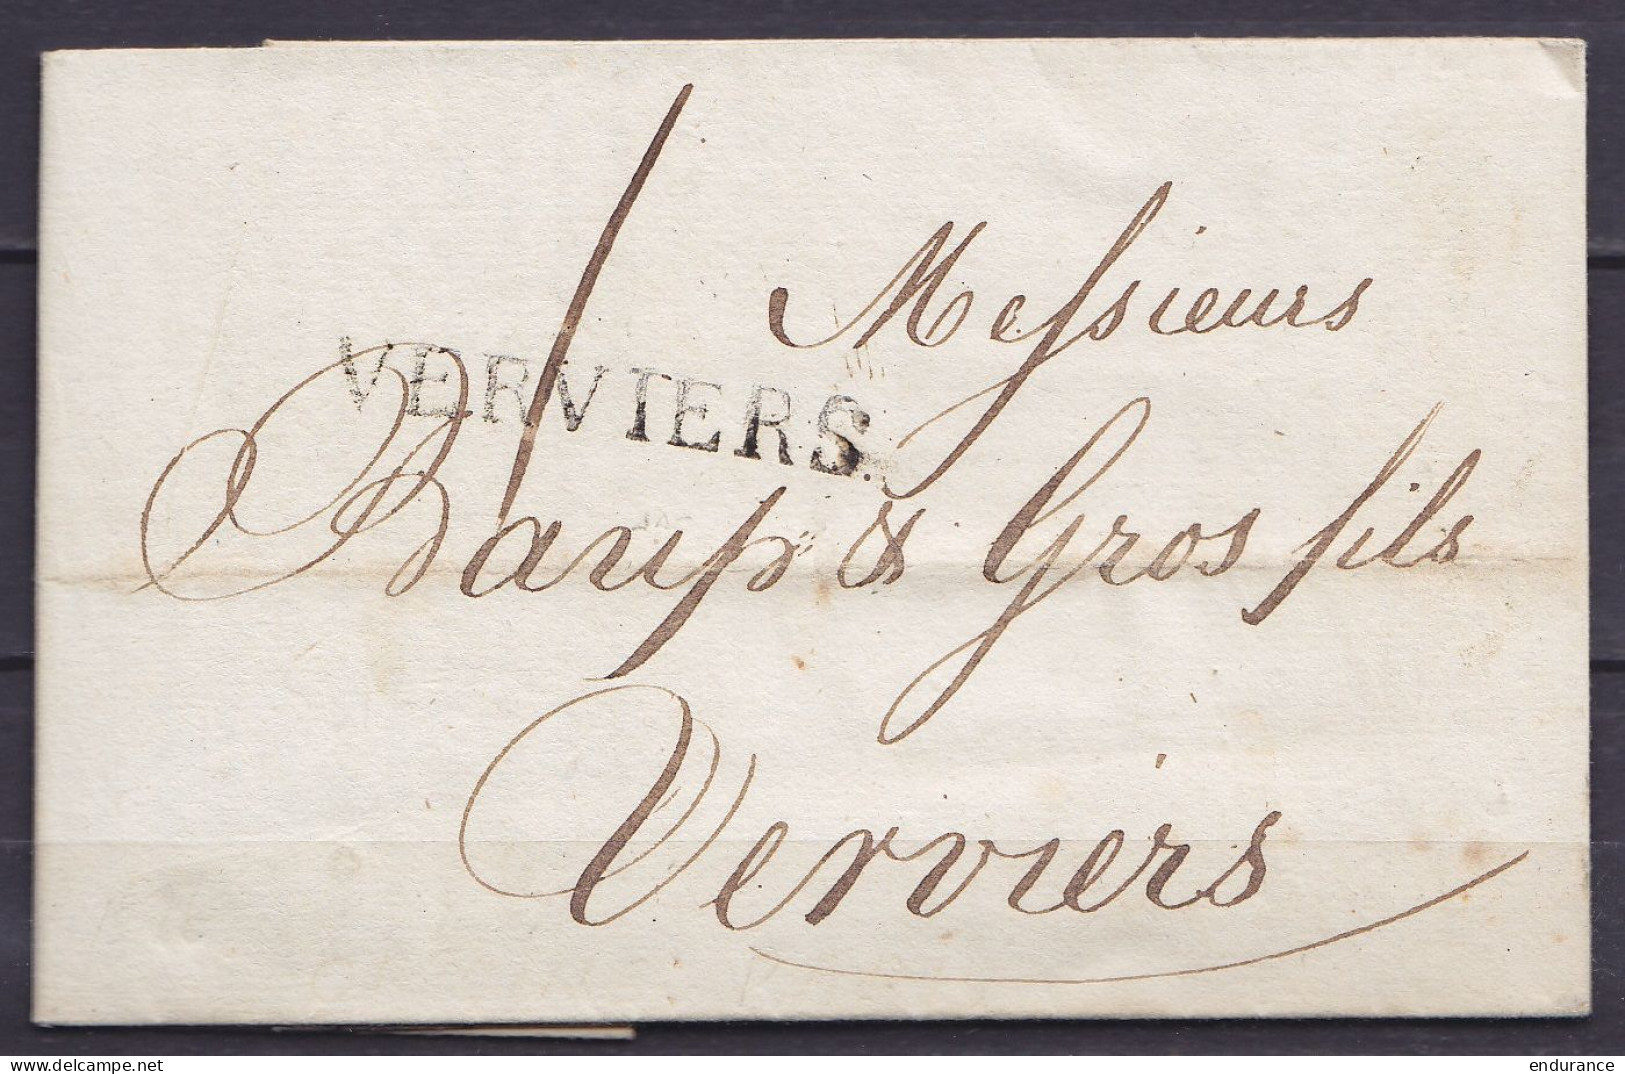 Messieurs
VERVIERS.
Baup & Gros fils
Verviers
delcampe.net
endurance